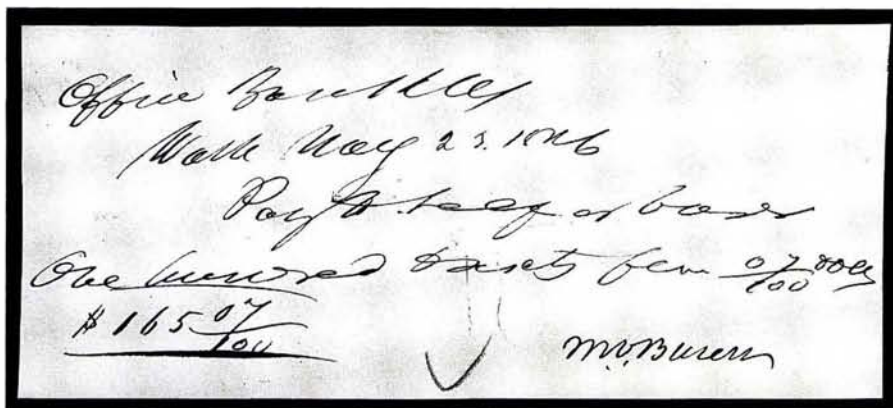 Office Bank
Wash May 23. 1826
Pay to self or bearer
One hundred & sixty five 07/100 dolls
$165 07/100
M.V. Buren